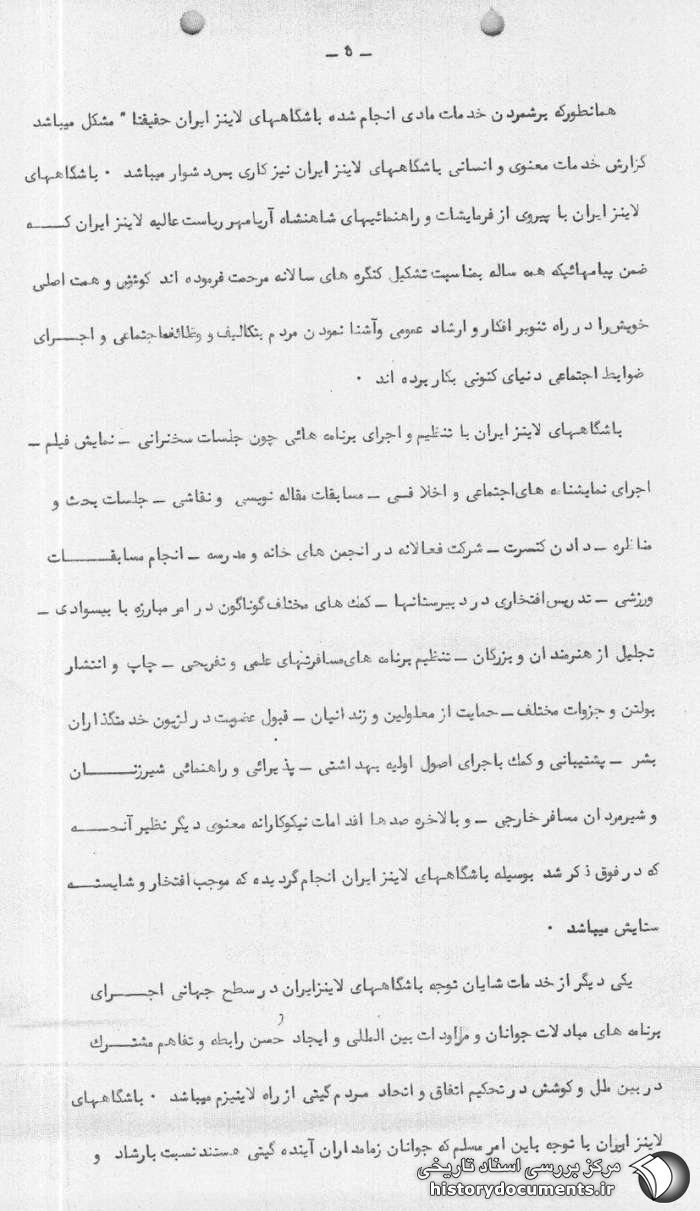 ـ ۵ ـ
همانطورکه برشمردن خدمات مادی انجام شده باشگاههای لاینز ایران حقیقتا" مشکل میباشد
گزارش خدمات معنوی و انسانی باشگاههای لاینز ایران نیز کاری بس دشوار میباشد ۰ باشگاههای
لاینز ایران با پیروی از فرمایشات و راهنمائیهای شاهنشاه آریامهر ریاست عالیه لاینز ایران کـــه
ضمن پیامهائیکه همه ساله بمناسبت تشکیل کنگره های سالانه مرحمت فرموده اند کوشش و همت اصلی
خویش را در راه تنویر افکار و ارشاد عمومی وآشنا نمودن مردم بتکالیف و وظائف اجتماعی و اجـــرای
ضوابط اجتماعی دنیای کنونی بکار برده اند ۰
باشگاههای لاینز ایران با تنظیم و اجرای برنامه هائی چون جلسات سخنرانی ـ نمایش فیلم ـ
اجرای نمایشنامه های اجتماعی و اخلاقـی ـ مسابقات مقاله نویسی و نقاشی ـ جلسات بحث و
مناظره ـ دادن کنسرت ـ شرکت فعالانه در انجمن های خانه و مدرسه ـ انجام مسابقــــات
ورزشی ـ تدریس افتخاری در دبیرستانها ـ کمک های مختلف گوناگون در امر مبارزه با بیسوادی ـ
تجلیل از هنرمندان و بزرگان ـ تنظیم برنامه های مسافرتهای علمی و تفریحی ـ چاپ و انتشار
بولتن و جزوات مختلف ـ حمایت از معلولین و زندانیان ـ قبول عضویت در لژیون خدمتگذاران
بشر ـ پشتیبانی و کمک باجرای اصول اولیه بهداشتی ـ پذیرائی و راهنمائی شیرزنـــــان
و شیرمردان مسافر خارجی ـ و بالاخره صدها اقدامات نیکوکارانه معنوی دیگر نظیر آنچـــه
که در فوق ذکر شد بوسیله باشگاههای لاینز ایران انجام گردیده که موجب افتخار و شایستـــه
ستایش میباشد ۰
یکی دیگر از خدمات شایان توجه باشگاههای لاینزایران در سطح جهانی اجـــرای
برنامه های مبادلات جوانان و مراودات بین المللی و ایجاد حسن رابطه و تفاهم مشتـــرک
در بین ملل و کوشش در تحکیم اتفاق و اتحاد مردم گیتی از راه لاینیزم میباشد ۰ باشگاههای
لاینز ایران با توجه باین امر مسلم که جوانان زمامداران آینده گیتی هستند نسبت بارشاد و
مرکز بررسی اسناد تاریخی
historydocuments.ir